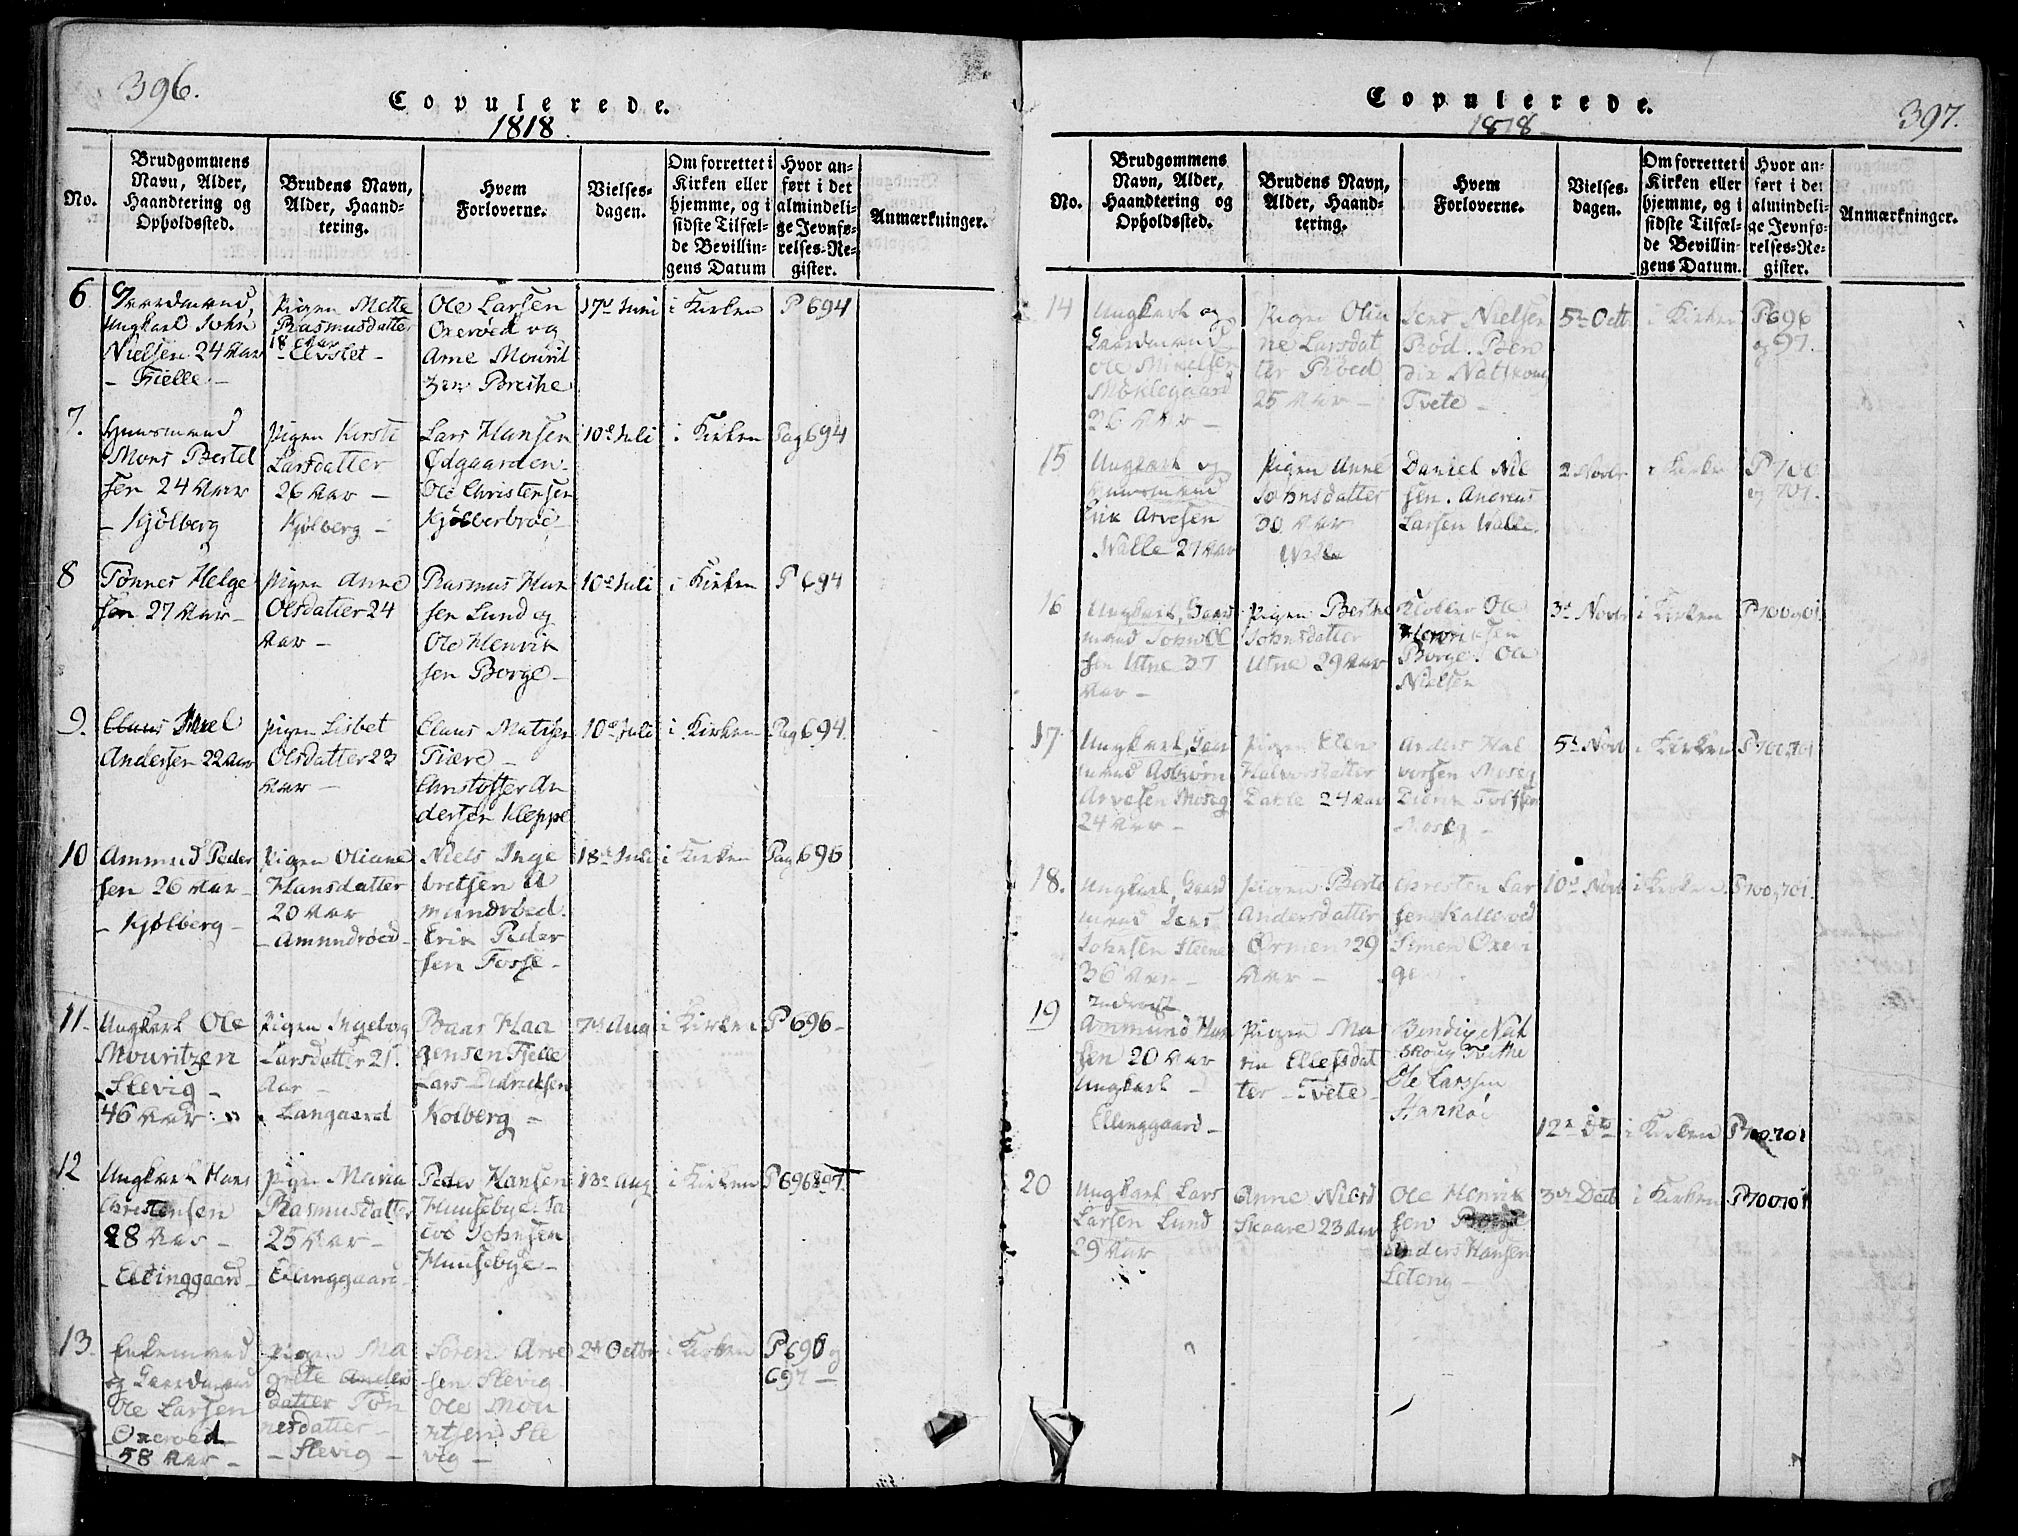 396.
Copulerede.
1818
No.
Brudgommens
Navn, Alder,
Haandtering og
Opholdssted.
Brudens Navn,
Alder, Haand-
tering.
Hvem
Forloverne.
Vielses-
dagen.
Om forrettet i
Kirken eller
hjemme, og i
sidste Tilfæl-
de Bevillin-
gens Datum
Hvor an-
ført i det
almindeli-
ge Jevnfø-
relses-Re-
gister.
Anmærkninger.
6
Gaardmand,
Ungkarl John
Nielsen 24 Aar
- Fielle -
Pigen Mette
Rasmusdatter
18 Aar
Ole Larsen
Oxerøed og
Arne Mourit
zen
17d Juni
i Kirken
P 694
7.
Huusmand
Mons Bertel
sen 24 Aar
- Kjölberg
Pigen Kirsti
Larsdatter
26 Aar -
Kjölberg -
Lars Hansen
Ødgaarden.
Ole Christensen
10d Juli
i Kirken
Pag 694
8
Tönnes Helge
sen 27 Aar -
Pigen Anne
Olsdatter 24
Aar -
Rasmus Han
sen Lund og
Ole Henrik
sen Borge -
10d Juli
i Kirken
P 694
9.
Claus
Andersen 22 Aar
Pigen Lisbet
Olsdatter 23
Aar -
Claus
Christoffer An
dersen Kleppe
10d Juli
i Kirken
Pag 694.
10
Ammund Peder
sen 26 Aar -
- Kjølberg -
Pigen Oliane
Hansdatter
20 Aar
- Amundröed -
Niels Inge
bretsen A
mundröed.
Erik Peder
sen Fosse -
18d Juli
i Kirken
Pag 695
11.
Ungkarl Ole
Mouritzen
Slevig -
46 Aar
Pigen Ingeborg
Larsdatter 21.
Aar -
Langaard
Baar Haa
gensen Fielle
Lars Didricksen
Kolberg -
7d Aug
i Kirken
P 696 -
12
Ungkarl Hans
Christensen
28 Aar -
- Elinggaard -
Pigen Maria
Rasmusdatter
25 Aar -
Elinggaard -
Peder Hansen
Huusebye. Ja
cob Johnsen
Huusebye -
13d Aug
i Kirken
P 696 & 97.
13.
Enkemand
og Gaardmand
Ole Larsen
Oxeroed
58 Aar -
Pigen Ma
grete Anders
datter Tön
nesdatter -
- Slevig -
Sören Arve
sen Slevig.
Ole Mou
ritsen Sle
vig -
24 Octbr
i Kirken
P 696 og
697 -
Copulerede.
1818
397.
No.
Brudgommens
Navn, Alder,
Haandtering og
Opholdssted.
Brudens Navn,
Alder, Haand-
tering.
Hvem
Forloverne.
Vielses-
dagen.
Om forrettet i
Kirken eller
hjemme, og i
sidste Tilfæl-
de Bevillin-
gens Datum.
Hvor an-
ført i det
almindeli-
ge Jevnfø-
relses-Re-
gister.
Anmærkninger.
14
Ungkarl og
Gaardmand
Ole Mikelsen
Möklegaard
26 Aar -
Pigen Olia
ne Larsdat
ter Röed
25 Aar -
Jens Nielsen
Röd. Ben
dix Natskoug
Tvete -
5te Octb
i Kirken
P 696
og 97.
15
Ungkarl og
Huusmand
Erik Arvesen
Walle 27 Aar
Pigen Anne
Johnsdatter
30 Aar
Walle
Daniel Nil
sen. Andreas
Larsen Walle
2 Novbr
i Kirken
P 700
og 701.
16
Ungkarl, Gaard
mand John Ol
sen Utne 37
Aar -
Pigen Berthe
Johnsdatter
Utne 29 Aar
Klokker Ole
Henriksen
Borge. Ole
Nielsen
3d Novbr
i Kirken
P 700, 701.
17
Ungkarl, Gaar
mand Asbiörn
Arvesen Moseg
24 Aar -
Pigen Elen
Halvorsdatter
Dahle 24 Aar
Anders Hal
vorsen Moseg
Didrik
Moseg -
5d Novb
i Kirken
P 700, 701
18.
Ungkarl, Gaard
mand Jens
Johnsen Steene
36 Aar -
Pigen Berte
Andersdatter
Ørmen 29
Aar -
Christen Lar
sen Kalleröed
Simen Oxevi
gen -
10d Novb
i Kirken
P 700, 701.
19
Ammund Han
sen 20 Aar
Ungkarl -
Ellinggaard -
Pigen Ma
ria Ellefsdat
ter - Tvete -
Bendix Nat
skoug Tvethe
Ole Larssen
Hankøe
12d Do
i Kirken
P 700, 701
20
Ungkarl Lars
Larsen Lund
29 Aar
Anne Nielsd
Skaare 23 Aar
Ole Henrik
sen Borge
Anders Hansen
Leteng -
3d Decb
i Kirken
P 700, 701